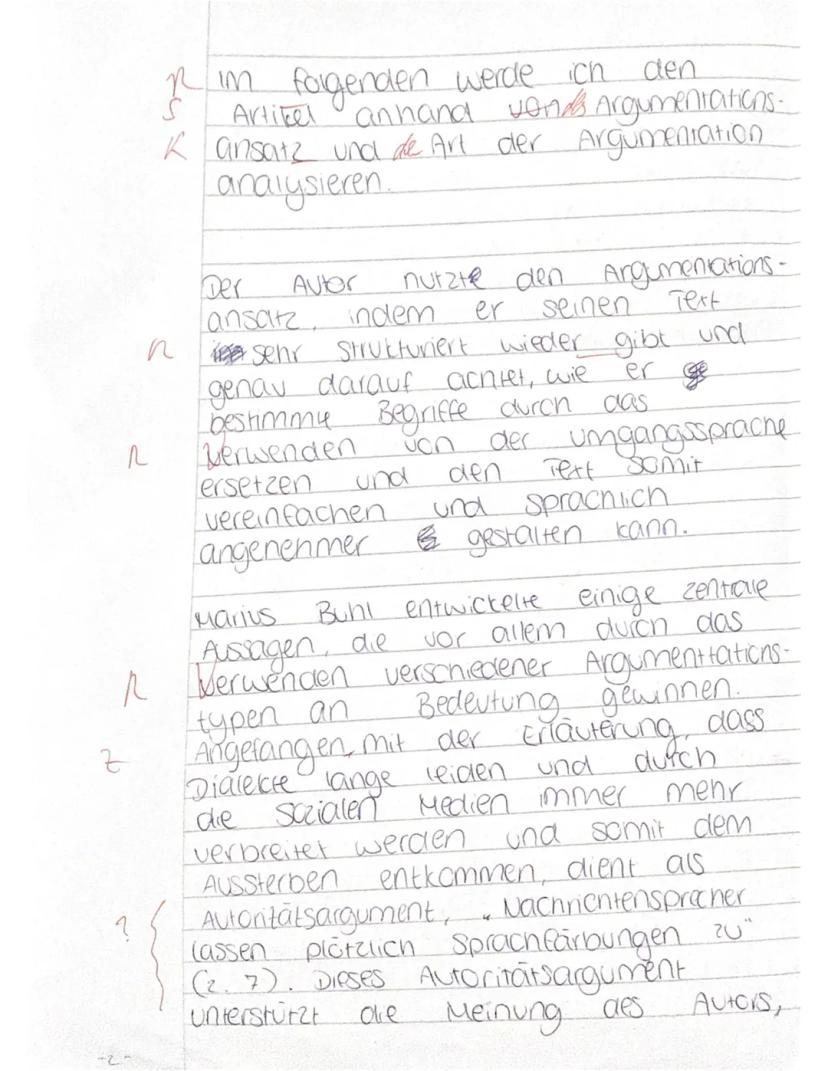 R im folgenden werde ich den
S Artikel anhand von des Argumentations-
K ansatz und de Art der Argumentation
analysieren.
Der Autor nutzte den Argumentations-
ansatz, indem er seinen Text
R sehr strukturiert wieder gibt und
genau darauf achtet, wie er
bestimmte Begriffe durch das
R Verwenden von der umgangssprache
ersetzen und den Text somit
vereinfachen und sprachlich
angenehmer gestalten kann.
Marius Buhl entwickelte einige zentrale
Aussagen, die vor allem durch das
R Verwenden verschiedener Argumenttations-
typen an Bedeutung gewinnen.
Angefangen, mit der Erläuterung, dass
Z Dialekte lange leiden und durch
die sozialen Medien immer mehr
verbreitet werden und somit dem
Aussterben entkommen, dient als
? Autoritätsargument, „Nachrichtensprecher
lassen plötzlich Sprachfärbungen zu"
(z. 7). Dieses Autoritätsargument
unterstützt die Meinung des Autors,
-2-